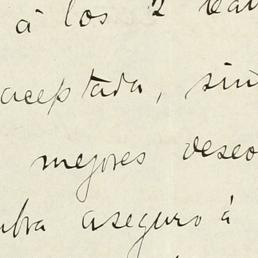 á los 2
aceptada, sin
mejores deseo
aseguro á